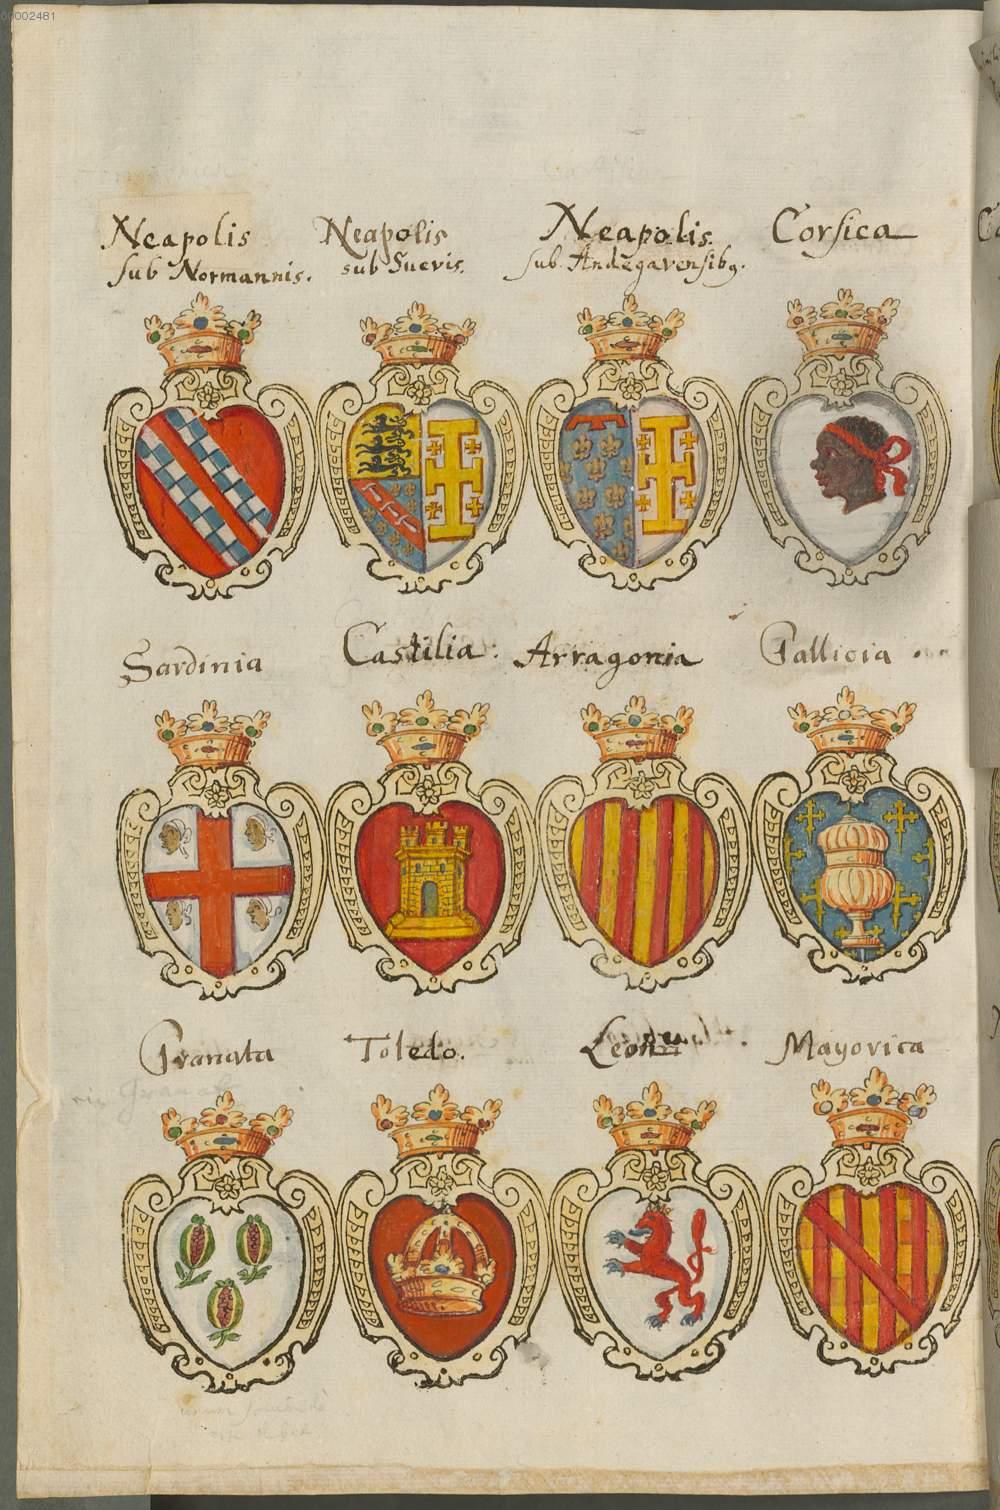 00002481
Neapolis
sub Normannis.
Neapolis
sub Suevis.
Neapolis.
sub. Andegavensibꝫ.
Corsica
Sardinia
Castilia.
Arragonia
Gallicia
Granata
Toledo.
Leon
Mayorica